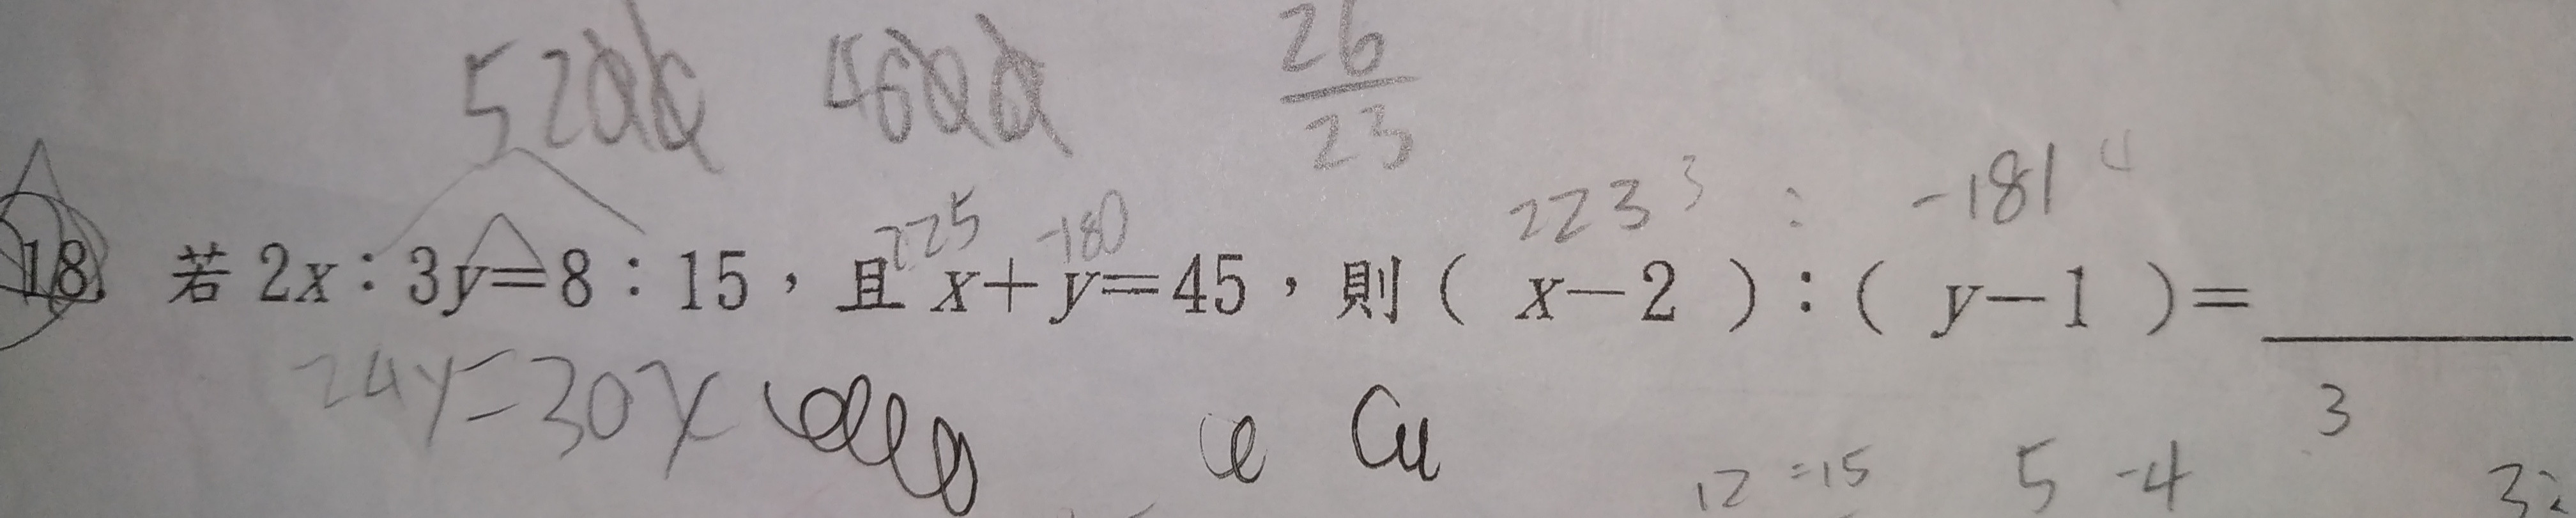 5200 4600 26
23
223 3 : -181 4
225 -180
18. 若 2x：3y=8：15，且 x+y=45，則（ x-2 ）：（ y-1 ）=
24y=30x
3
12 =15 5 -4